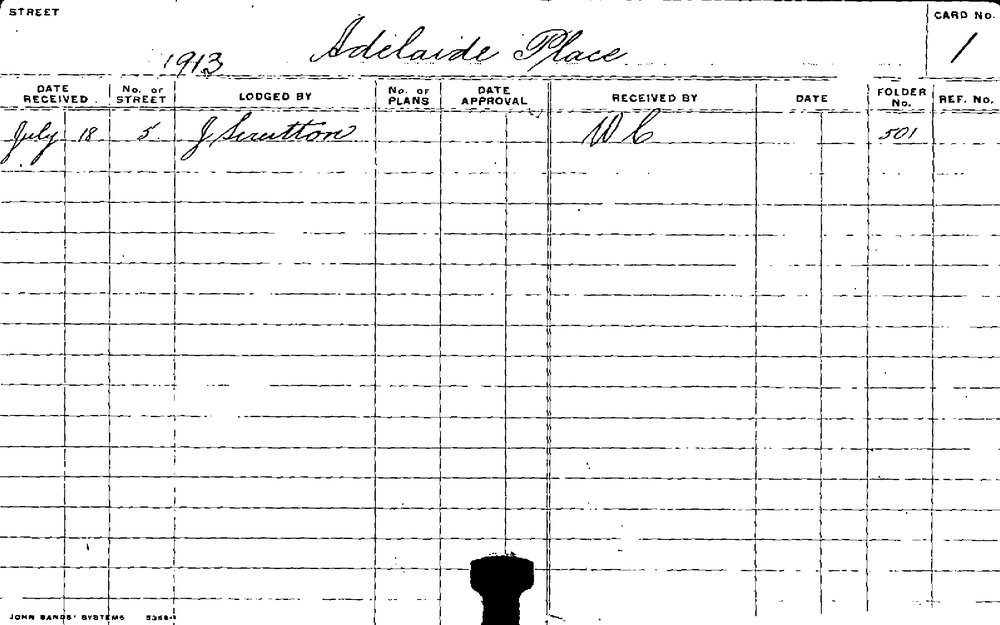 STREET
CARD No.
1913 Adelaide Place
1
DATE RECEIVED No. of STREET LODGED BY No. of PLANS DATE APPROVAL RECEIVED BY DATE FOLDER No. REF. No.
July 18 5 J Scrutton W C 501
JOHN SANDS' SYSTEMS